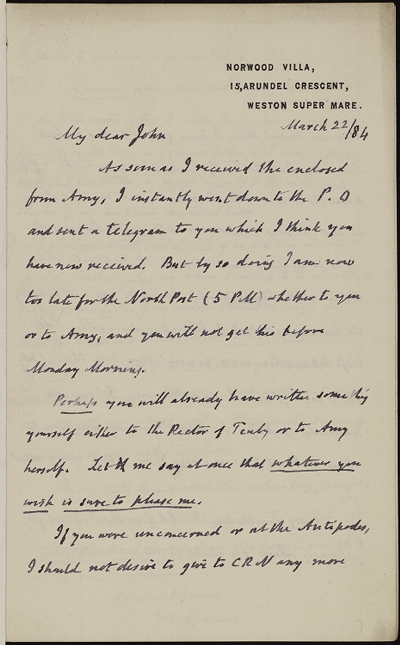 NORWOOD VILLA,
15, ARUNDEL CRESCENT,
WESTON SUPER MARE.
March 22/84
My dear John
As soon as I received the enclosed
from Amy, I instantly went down to the P. O
and sent a telegram to you which I think you
have now received. But by so doing I am now
too late for the North Post (5 PM) whether to you
or to Amy, and you will not get this before
Monday Morning.
Perhaps you will already have written something
yourself either to the Rector of Tenby or to Amy
herself. Let me say at once that whatever you
wish is sure to please me.
If you were unconcerned or at the Antipodes,
I should not desire to give to CRN any more